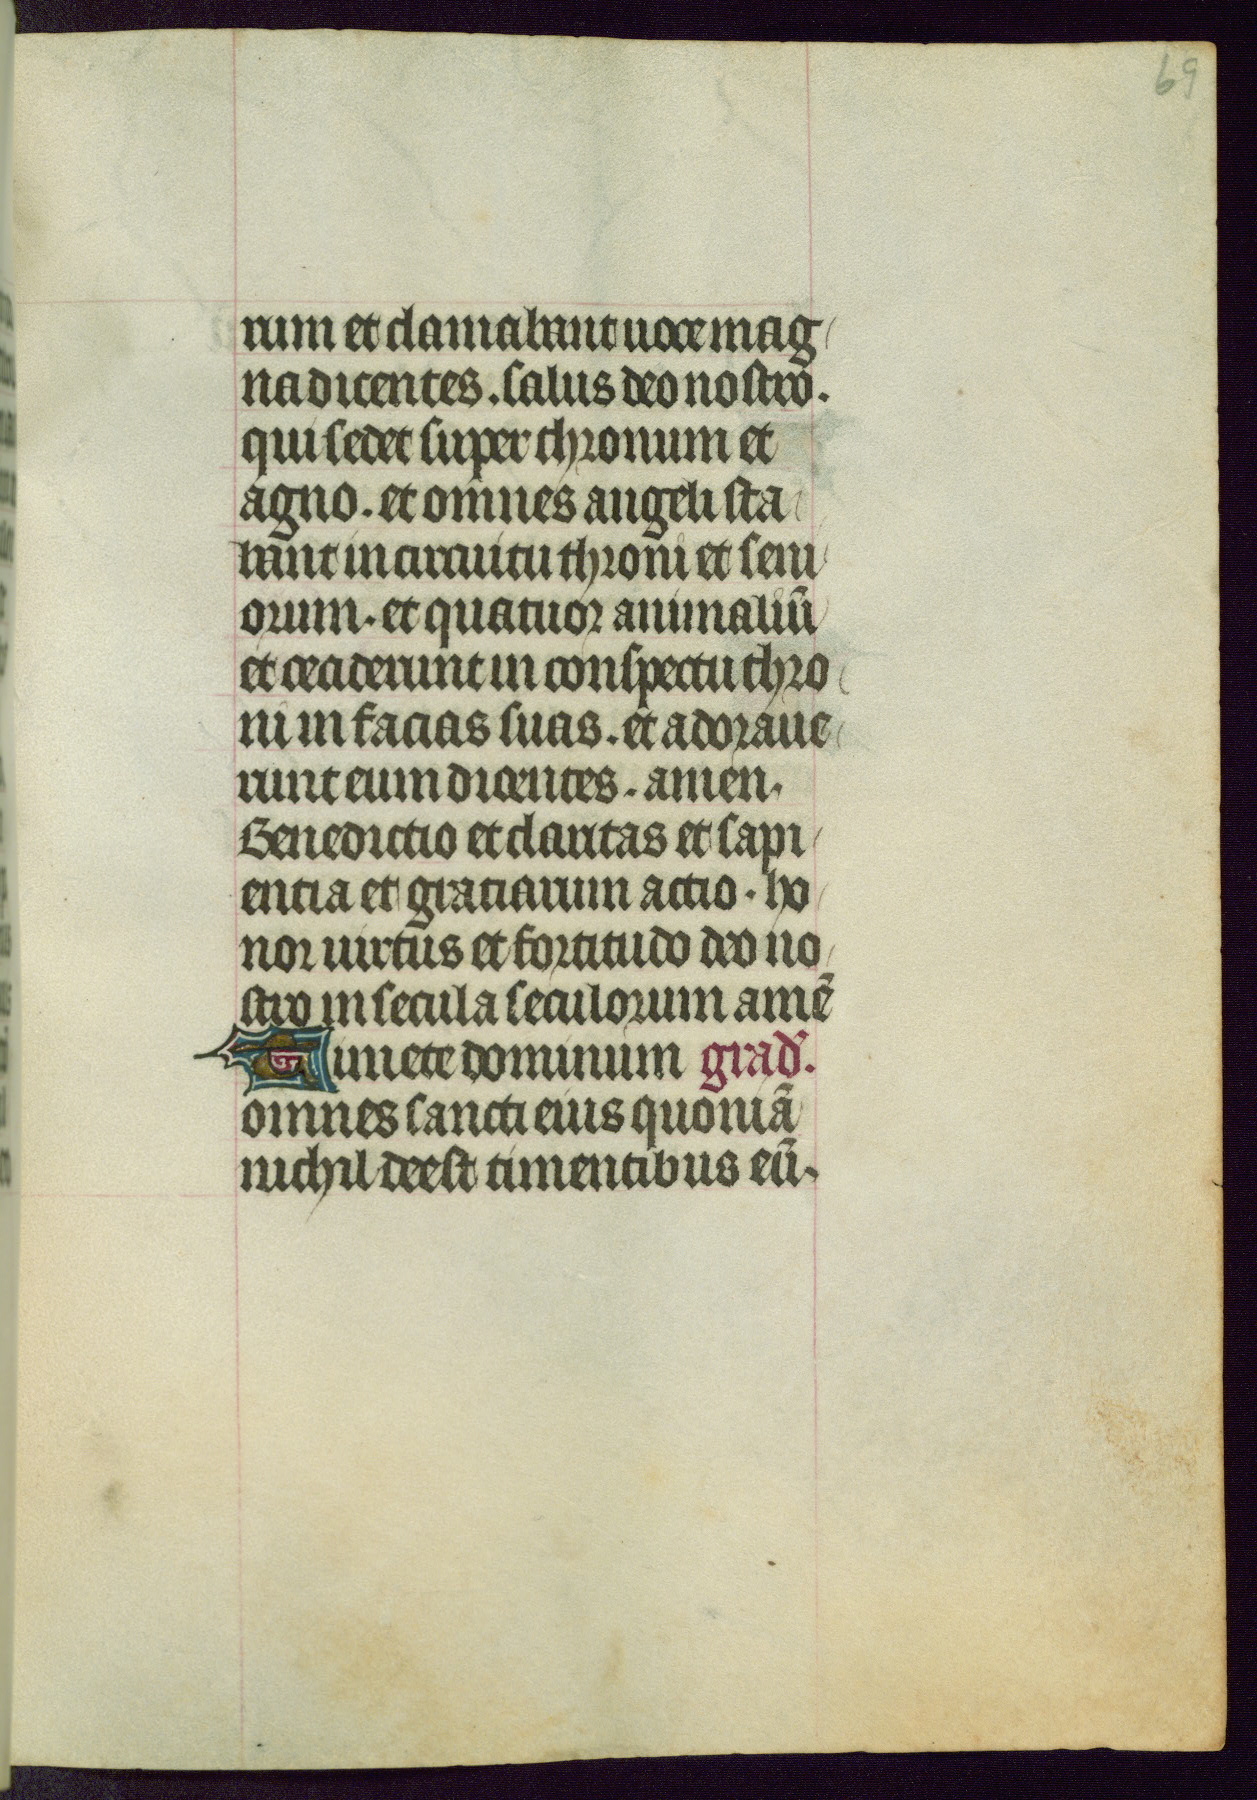 69
rum et clamabant uoce mag
na dicentes . salus deo nostro .
qui sedet super thronum et
agno . et omnes angeli sta
bant in circuitu throni et seni
orum . et quatuor animaliū
et ceciderunt in conspectu thro
ni in facias suas . et adoraue
runt eum dicentes . amen .
Benedictio et claritas et sapi
entia et gratiarum actio . ho
nor uirtus et fortitudo deo no
stro in secula seculorum amē
Timete dominum grad̄ .
omnes sancti eius quoniā
nichil deest timentibus eū .